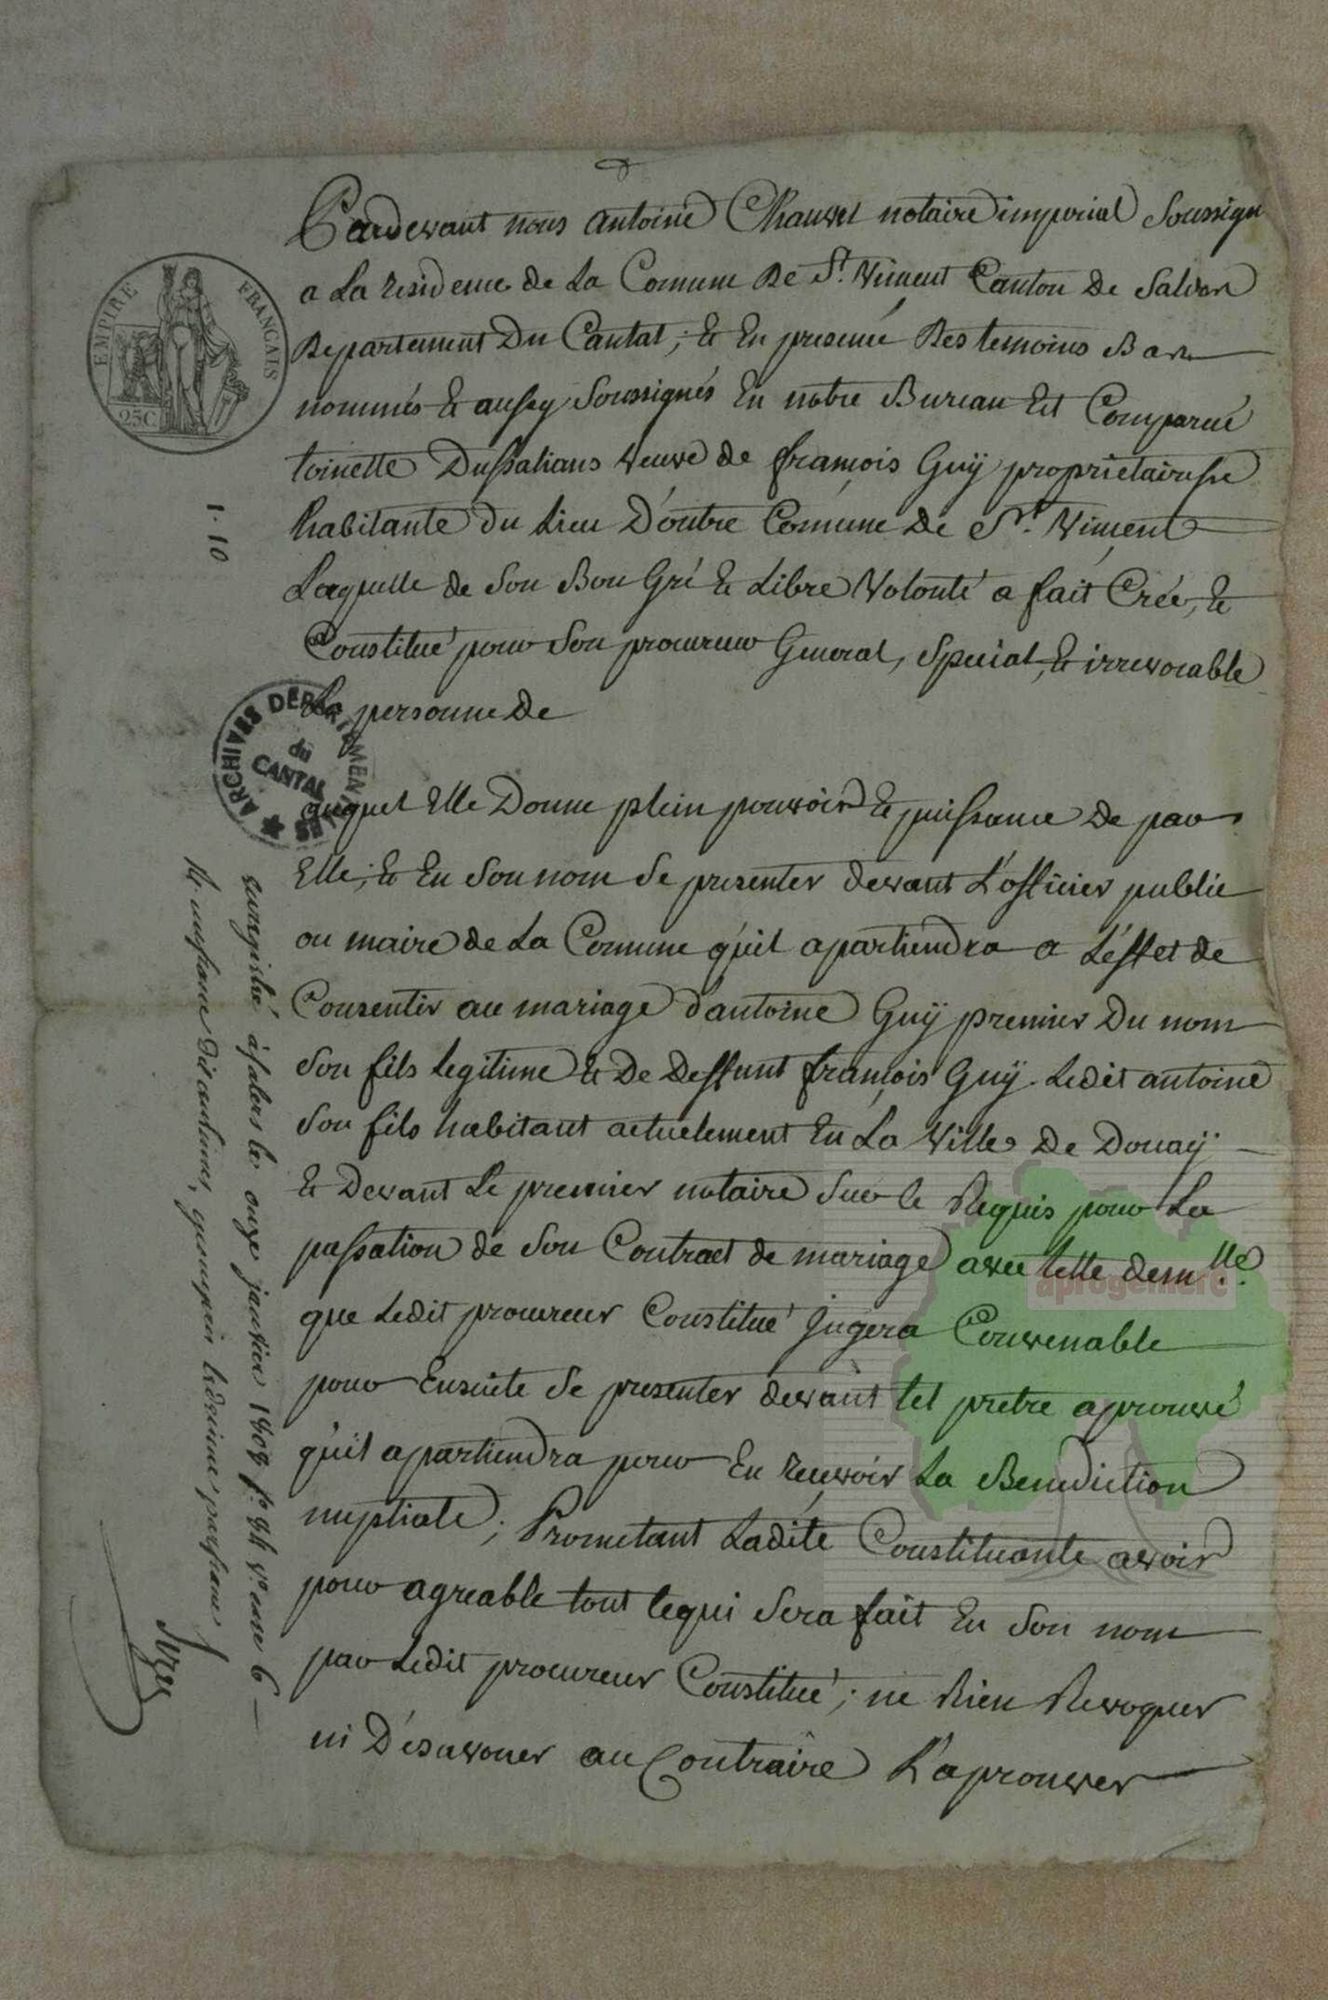 Pardevant nous antoine Chauvet notaire imperial Soussigne
a La residence de La Comune De St. Viment Canton de Salers
Departement Du Cantal, et En presence Des temoins Bas
nommés et aussy Soussignés En notre Bureau Est Comparue
toinette Dussalians veuve de françois Guÿ proprietairesse
habitante du Lieu D'outre Comune de St. Viment
Laquelle de Son Bon Gré et Libre Volonté a fait Crée, et
Constitué pour Son procureur General, Special, et irrevocable
La personne de
auquel Elle Donne plein pouvoir et puissance De par
Elle, et En Son nom Se presenter devant L'officier public
ou maire de La Comune qu'il apartiendra a L'effet de
Consentir au mariage d'antoine Guÿ premier Du nom
Son fils legitime et De Deffunt françois Guÿ Ledit antoine
Son fils habitant actuelement En La Ville De Douaÿ
et Devant Le premier notaire Sur le Requis pour La
passation de Son Contract de mariage avec telle demlle.
que Ledit procureur Constitué Jugera Convenable
pour Ensuite Se presenter devant tel pretre aprouvé
qu'il apartiendra pour En recevoir La Benediction
nuptiale; Prometant Ladite Constituante avoir
pour agreable tout cequi Sera fait En Son nom
par Ledit procureur Constitué; ne Rien Revoquer
ni Désavouer au Contraire L'aprouver
EMPIRE FRANÇAIS
25C
1.10
ARCHIVES DEPARTEMENTALES
du
CANTAL
enregistré à Salers le onze janvier 1808 fo. 94 Vo. case 6
R. un franc dix centimes,
aprogemere